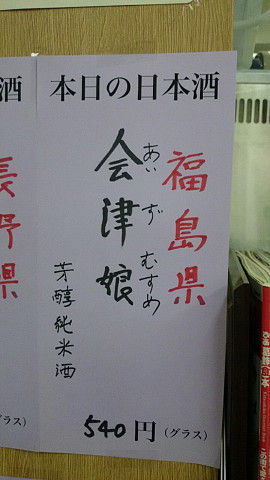 本日の日本酒
福島県
会津娘
あいづむすめ
芳醇純米酒
540円(グラス)
酒
長野県
グラス)